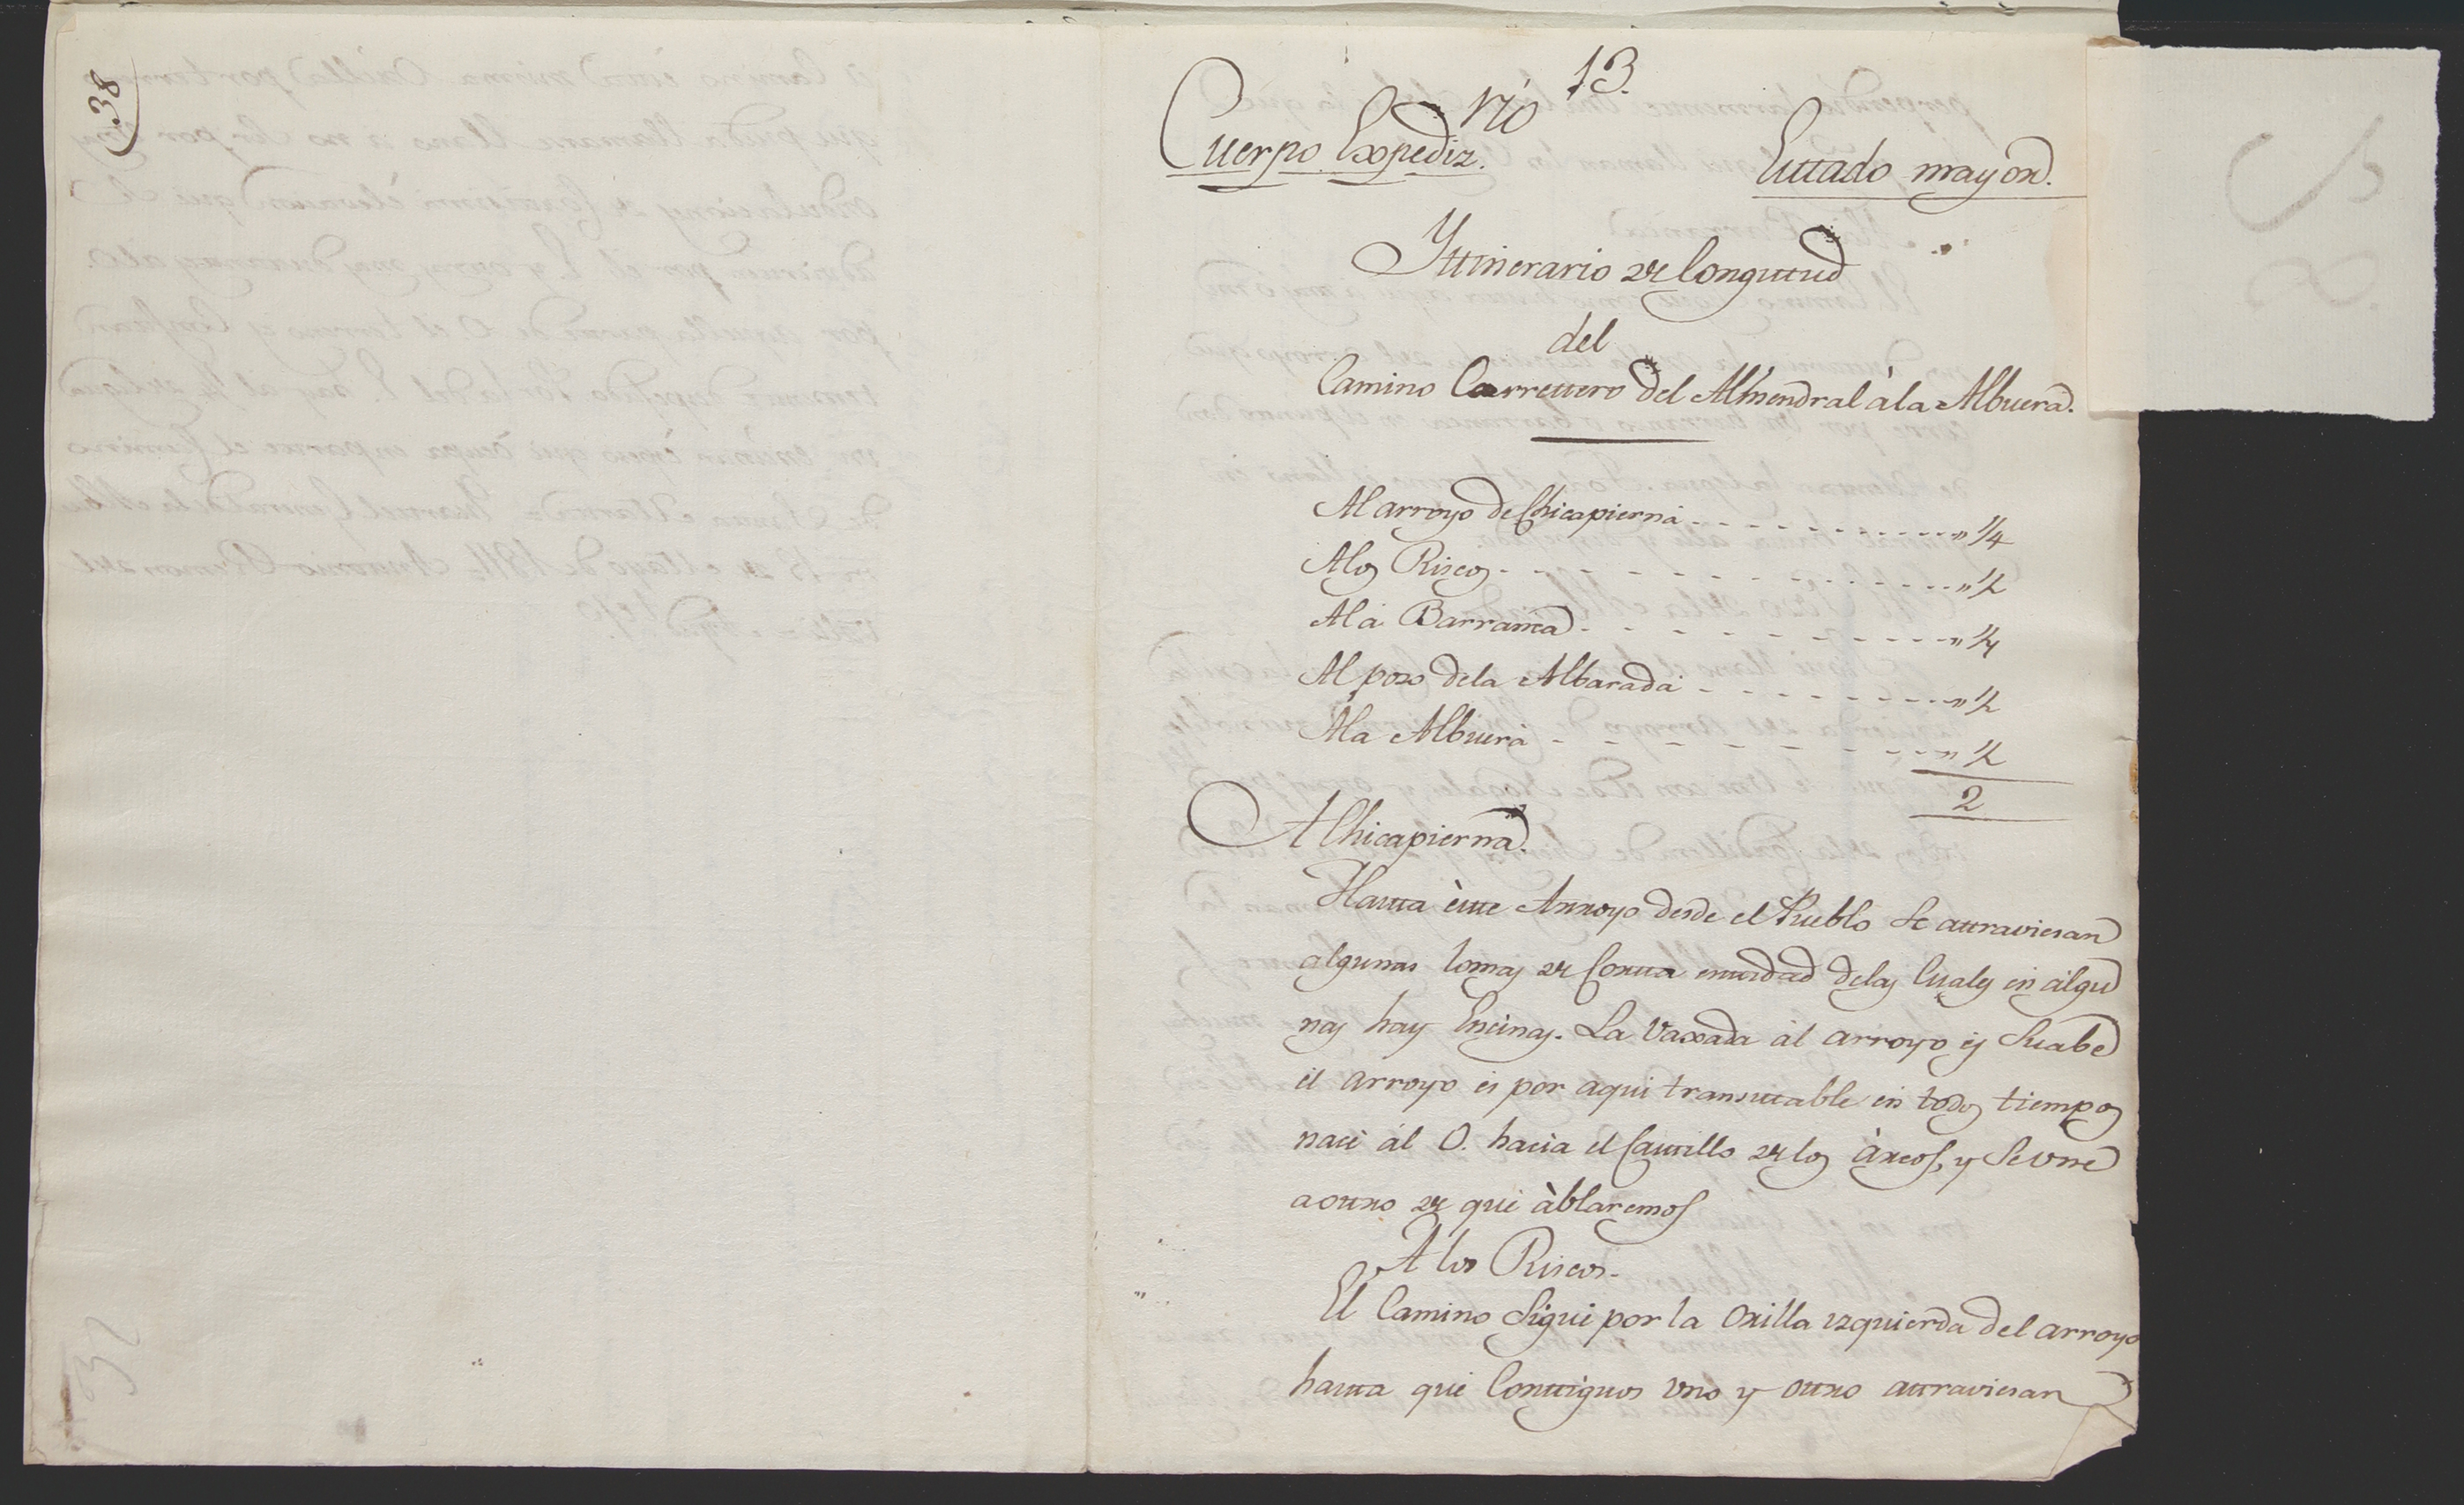 38
13.
Cuerpo Expediz.rio
Estado mayor.
Ytinerario de longitud
del
Camino Carretero del Almendral à la Albuera.
Al arroyo de Chicapierna - - - - - " 1/4
A los Riscos - - - - - " 1/2
A la Barranca - - - - - " 1/4
Al poso de la Albarada - - - - - " 1/2
A la Albuera - - - - - " 1/2
2
A Chicapierna.
Hasta èste Arroyo desde el Pueblo se atraviesan
algunas lomas de Corta entidad de las Cuales en algu
nas hay Encinas. La Vaxada al arroyo es Suabe
el arroyo es por aqui transitable en todos tiempos
nace al O. hacia el Castillo de los Àrcos, y se vne
a otro de que àblaremos
A los Riscos.
El Camino Sigue por la Orilla izquierda del arroyo
hasta que Contiguos vno y otro atraviesan
32